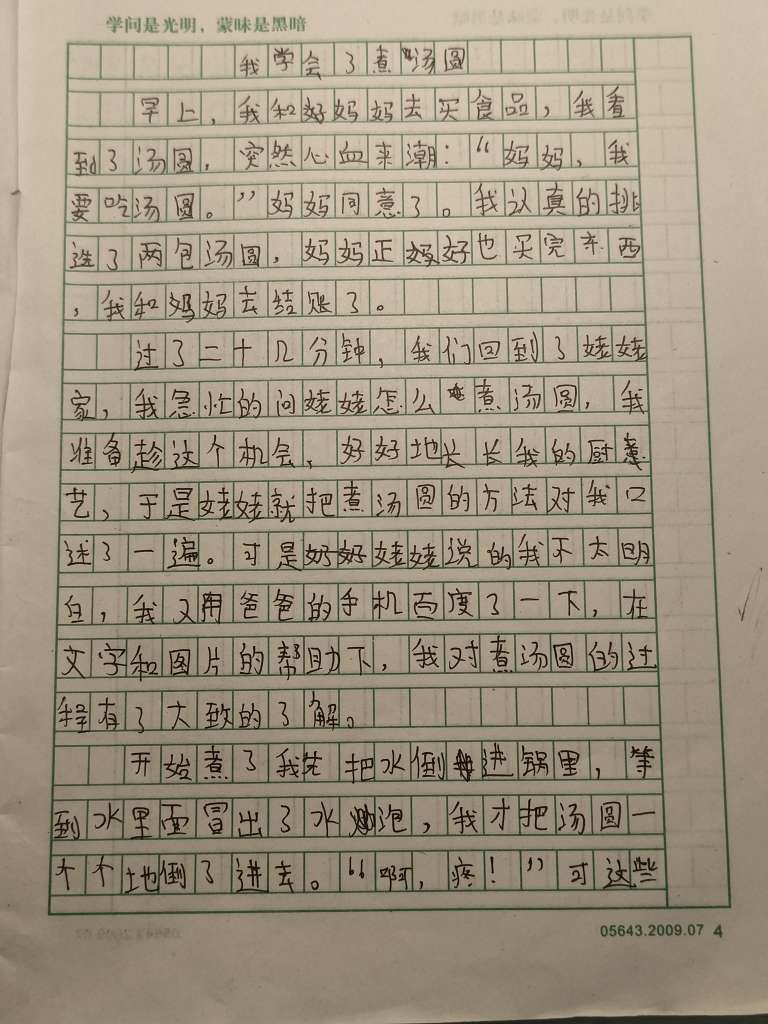 学问是光明，蒙昧是黑暗
我学会了煮汤圆
早上，我和好妈妈去买食品，我看
到了汤圆，突然心血来潮：“妈妈，我
要吃汤圆。”妈妈同意了。我认真的挑
选了两包汤圆，妈妈正好也买完东西
，我和妈妈去结账了。
过了二十几分钟，我们回到了姥姥
家，我急忙的问姥姥怎么煮汤圆，我
准备趁这个机会，好好地长长我的厨
艺，于是姥姥就把煮汤圆的方法对我口
述了一遍。可是姥姥说的我不太明
白，我又用爸爸的手机百度了一下，在
文字和图片的帮助下，我对煮汤圆的过
程有了大致的了解。
开始煮了我先把水倒进锅里，等
到水里面冒出了水泡，我才把汤圆一
个个地倒了进去。“啊，疼！”可这些
05643.2009.07 4